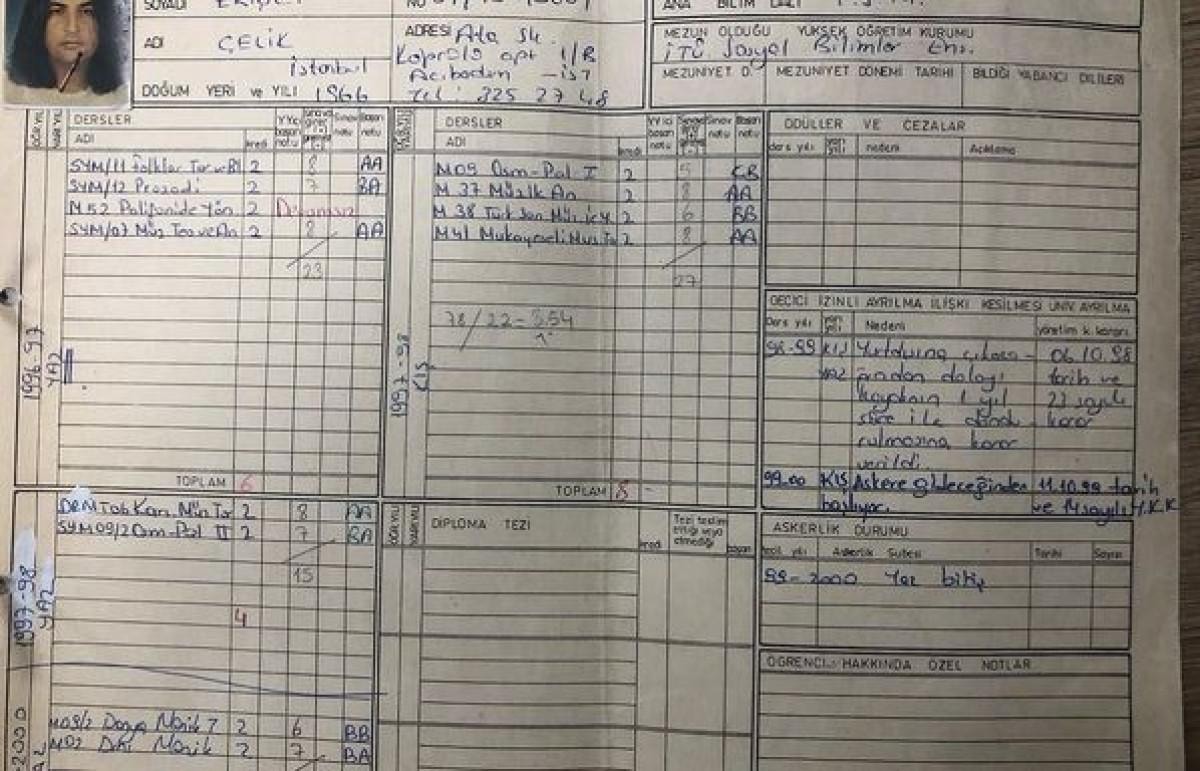 SOYADI
NO
ANA BİLİM DALI
ADI ÇELİK
ADRESİ Ata Sk.
Köprülü apt 1/B
Acıbadem - İST
Tel: 325 27 48
MEZUN OLDUĞU YÜKSEK ÖĞRETİM KURUMU
İTÜ Sosyal Bilimler Ens.
İstanbul
DOĞUM YERİ ve YILI 1966
MEZUNİYET D. MEZUNİYET DÖNEMİ TARİHİ BİLDİĞİ YABANCI DİLİLERİ
DERSLER
ADI kredi YYiçi başarı notu Sınav notu Başarı notu
1996-97 YAZ
SYM/11 Folklor 2 8 AA
SYM/12 Prozodi 2 7 BA
M52 Polifonide Yön 2 Devamsız
SYM/07 Müz Teo ve An 2 8 AA
23
TOPLAM 6
DERSLER
ADI kredi YYiçi başarı notu Sınav notu Başarı notu
1997-98 KIŞ
M09 Osm-Pal I 2 5 CB
M 37 Müzik An 2 8 AA
M 38 2 6 BB
M41 Mukayeseli 2 8 AA
27
78/22=3.54
TOPLAM 8 -
ÖDÜLLER VE CEZALAR
ders yılı yarı yılı nedeni Açıklama
GEÇİCİ İZİNLİ AYRILMA İLİŞKİ KESİLMESİ ÜNİV. AYRILMA
Ders yılı yarı yılı Nedeni yönetim k. kararı
98-99 KIŞ Yurtdışına çıkma- 06.10.98
YAZ sından dolayı tarih ve
kaydının 1 yıl 23 sayılı
süre ile dondu- karar
rulmasına karar
verildi.
99.00 KIŞ Askere gideceğinden 11.10.99 tarih
başlıyor. ve sayılı Y.K.K
1997-98 YAZ
2 8 AA
SYM09/2 Osm-Pal II 2 7 BA
15
4
-2000
M09/2 2 6 BB
M02 Dini Musik 2 7 BA
DİPLOMA TEZİ
kredi Tezi teslim ettiği veya etmediği başarı
ASKERLİK DURUMU
tecil yılı Askerlik Şubesi Tarihi Sayısı
99-2000 Yaz bitiş
ÖĞRENCİ HAKKINDA ÖZEL NOTLAR